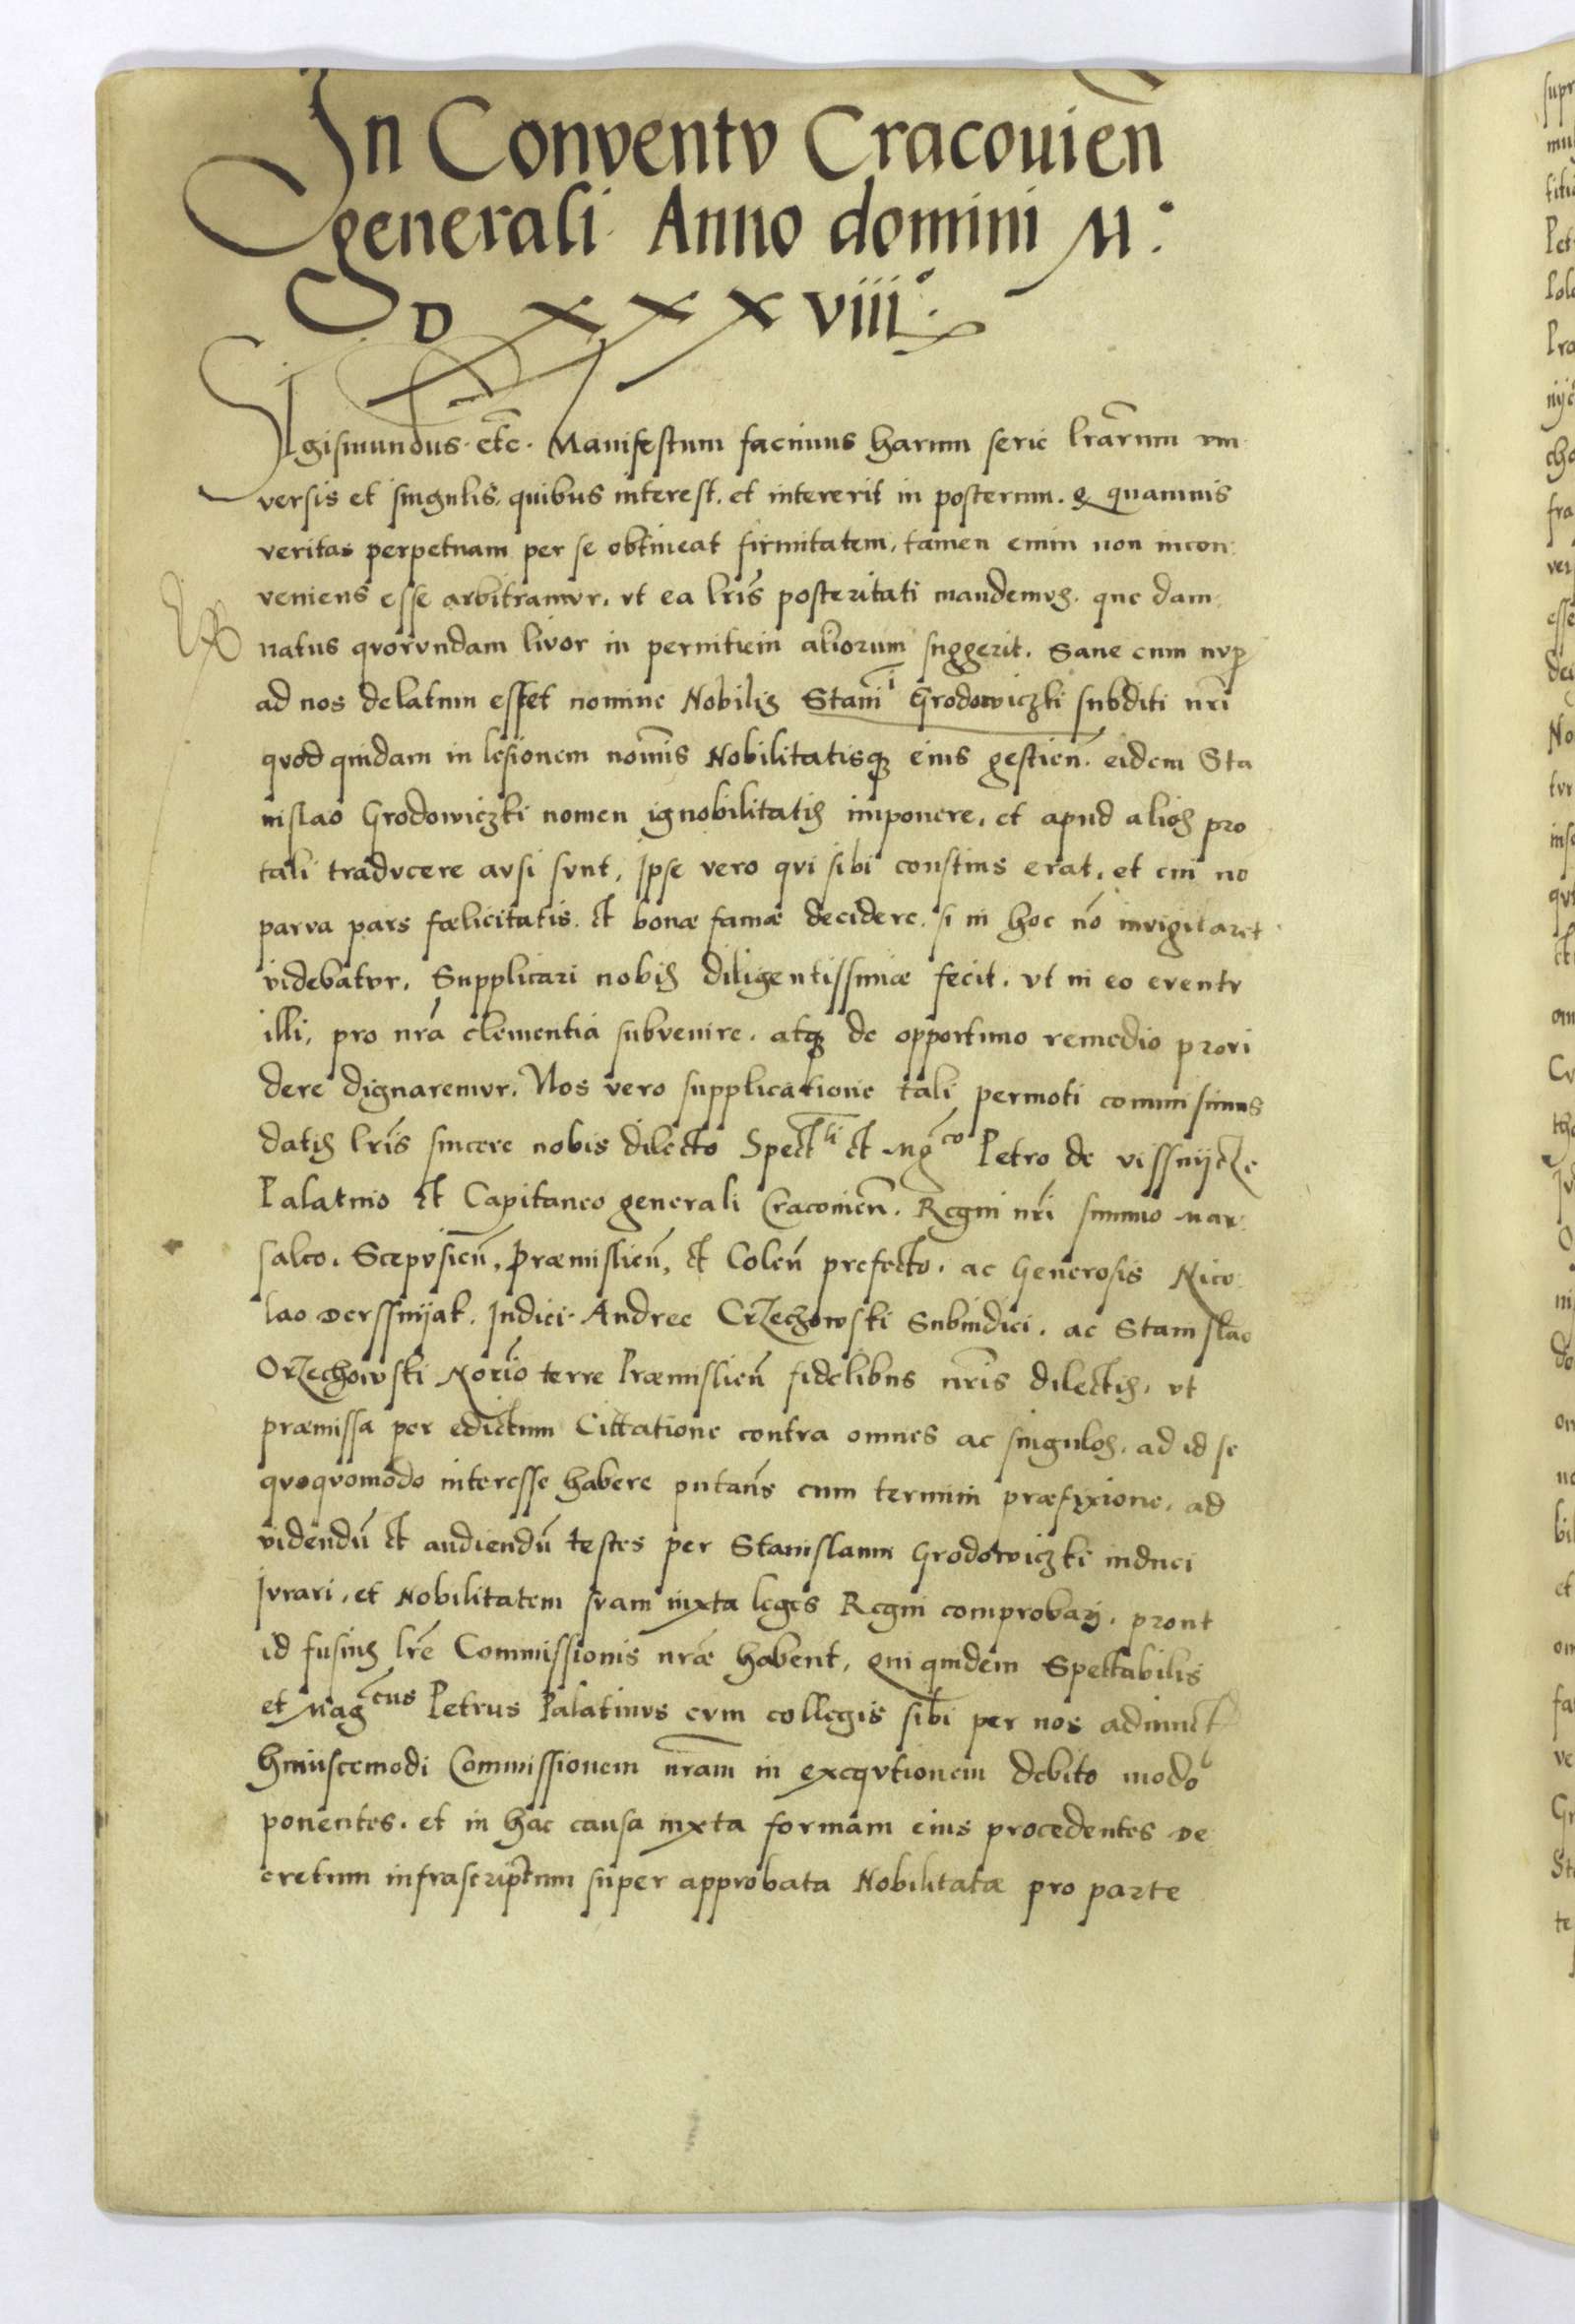 In Conventv Cracouien̄
generali Anno domini M:
D XXXVIII°
SIgismundus etc̄. Manifestum facimus harum serie lrārum vni
versis et singulis, quibus interest, et intererit in posterum. q quamuis
veritas perpetuam per se obtineat firmitatem, tamen enim non incon:
veniens esse arbitramvr, vt ea lrīs posteritati mandemvs. que dam:
natus qvorvndam livor in pernitiem aliorum suggerit. Sane cum nvp
ad nos delatum esset nomine Nobilis Stani i Grodowiczki subditi nrī
qvod quidam in lesionem nomīs Nobilitatisq eius gestien̄. eidem Sta
nislao Grodowiczki nomen ignobilitatis imponere, et apud alios pro
tali tradvcere avsi svnt, Ipse vero qvi sibi constius erat, et cui nō
parva pars fœlicitatis et bonæ famæ decidere, si in hoc nō invigilaret
videbatvr, Supplicari nobis diligentissimæ fecit, vt in eo eventv
illi, pro nrā clementia subvenire, atq de opportuno remedio provi
dere dignaremvr, Nos vero supplicatione tali permoti commisimus
datis lrīs sincere nobis dilecto Spect li et Mg co Petro de vissnijcze
Palatino et Capitaneo generali Cracouien̄. Regni nrī summo Mar:
salco. Scepvsien̄, Præmislien̄, et Colen̄ prefecto. ac Generosis Nico:
lao Derssnijak. Iudici. Andree Orzechowski Subiudici. ac Stanislao
Orzechowski Norīo terre Præmislien̄ fidelibus nrīs dilectis, vt
præmissa per edictum Cittatione contra omnes ac singulos, ad id se
qvoqvomodo interesse habere putan̄s cum termini præfixione, ad
videndū et audiendū testes per Stanislaum Grodowiczki induci
Ivrari, et Nobilitatem svam iuxta leges Regni comprobarj, prout
id fusius lrē Commissionis nrǣ habent, qui quidem Spettabilis
et Mag cus Petrus Palatinvs cvm collegis sibi per nos adiunct
huiiscemodi Commissionem nram̄ in exeqvtionem debito modo
ponentes, et in hac causa iuxta formam eius procedentes De
cretum infrascriptum super approbata Nobilitatæ pro parte